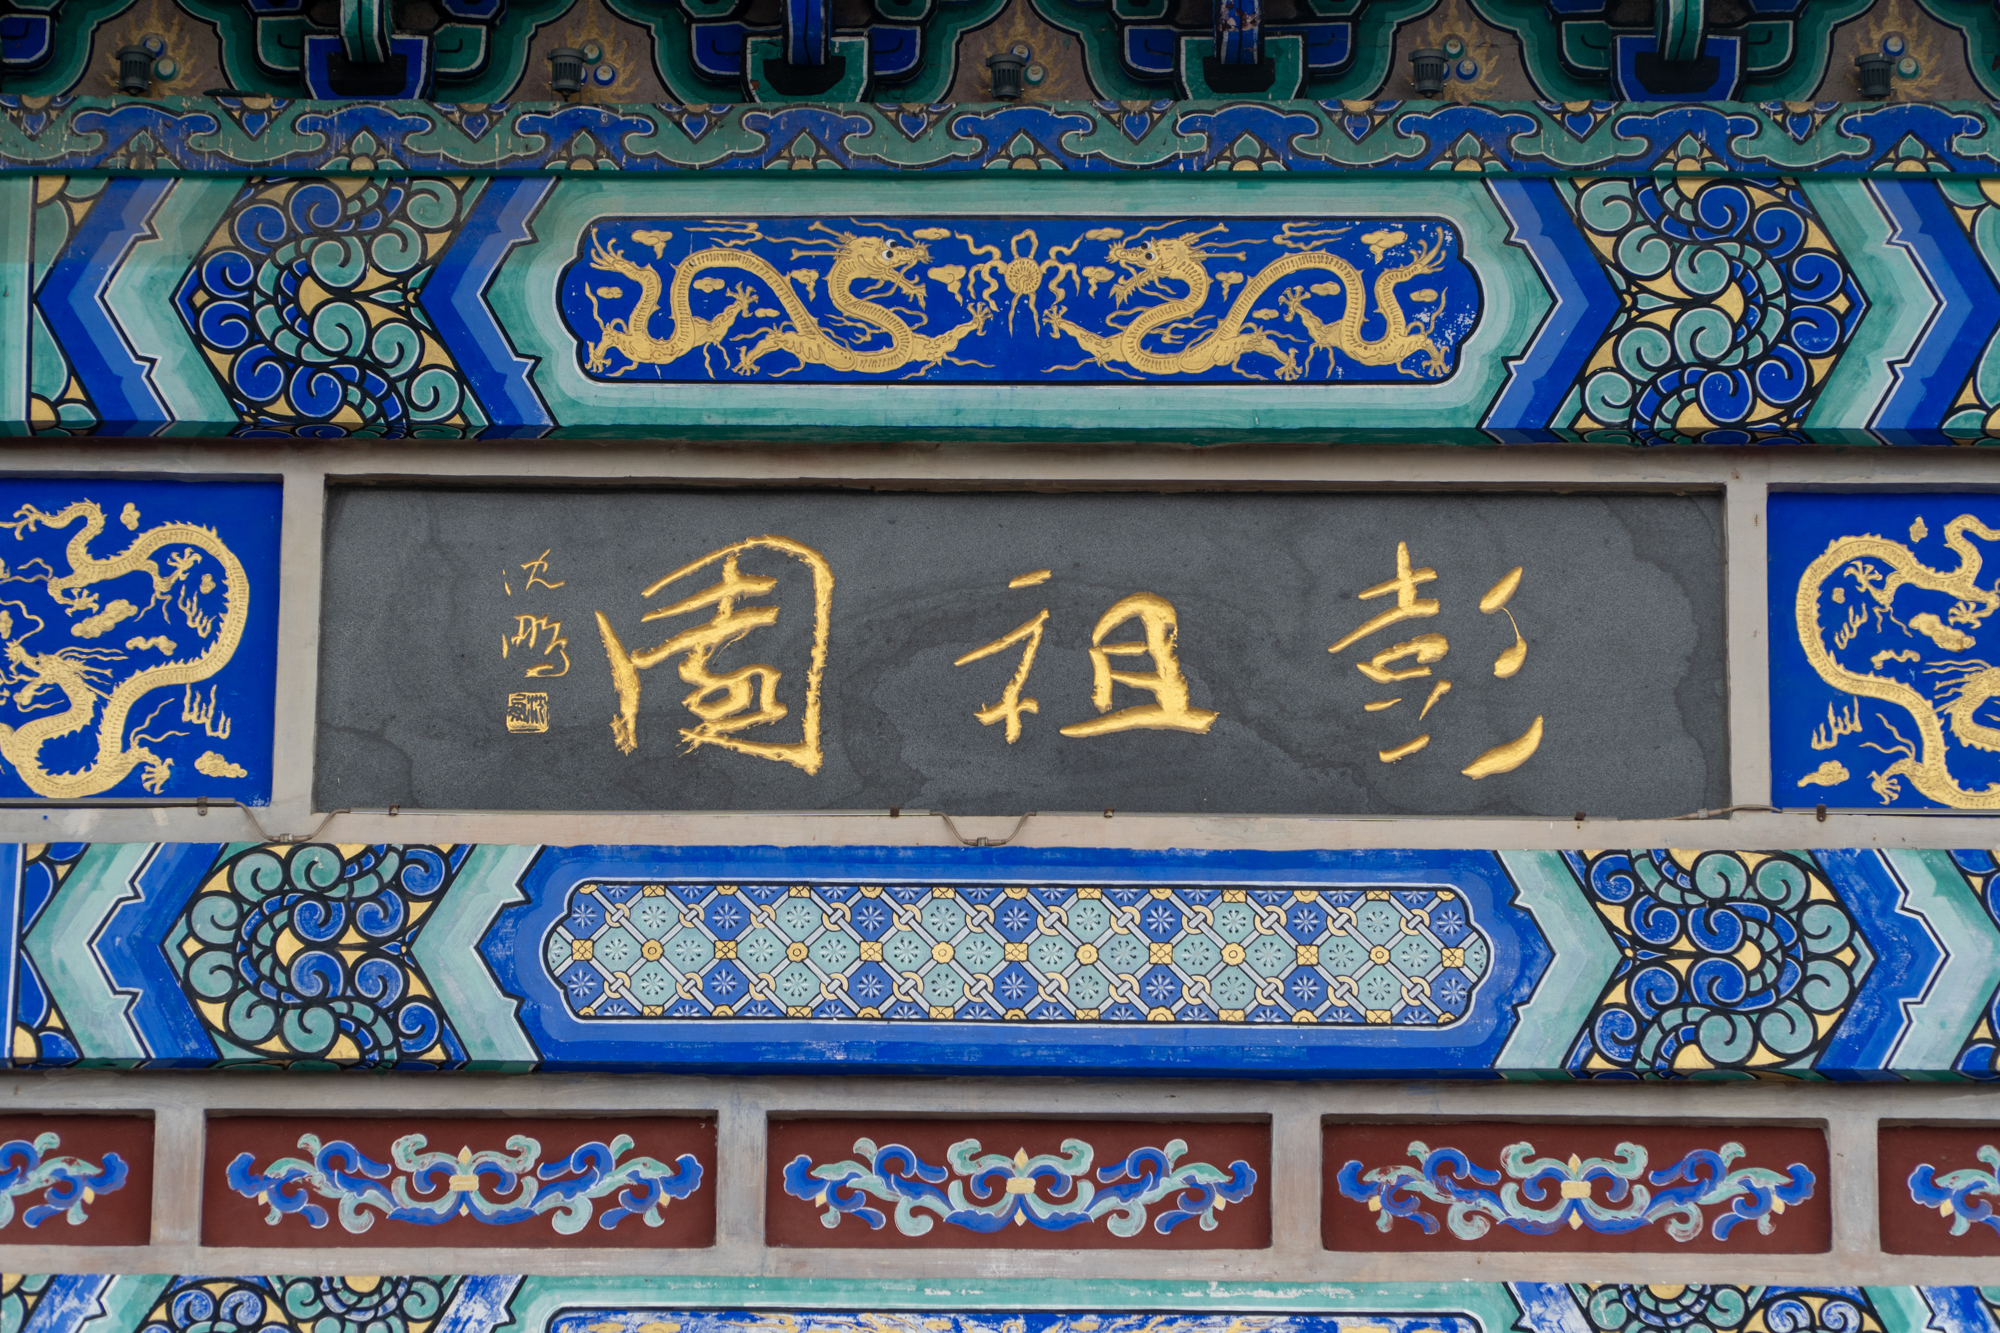 彭祖園
沈鹏